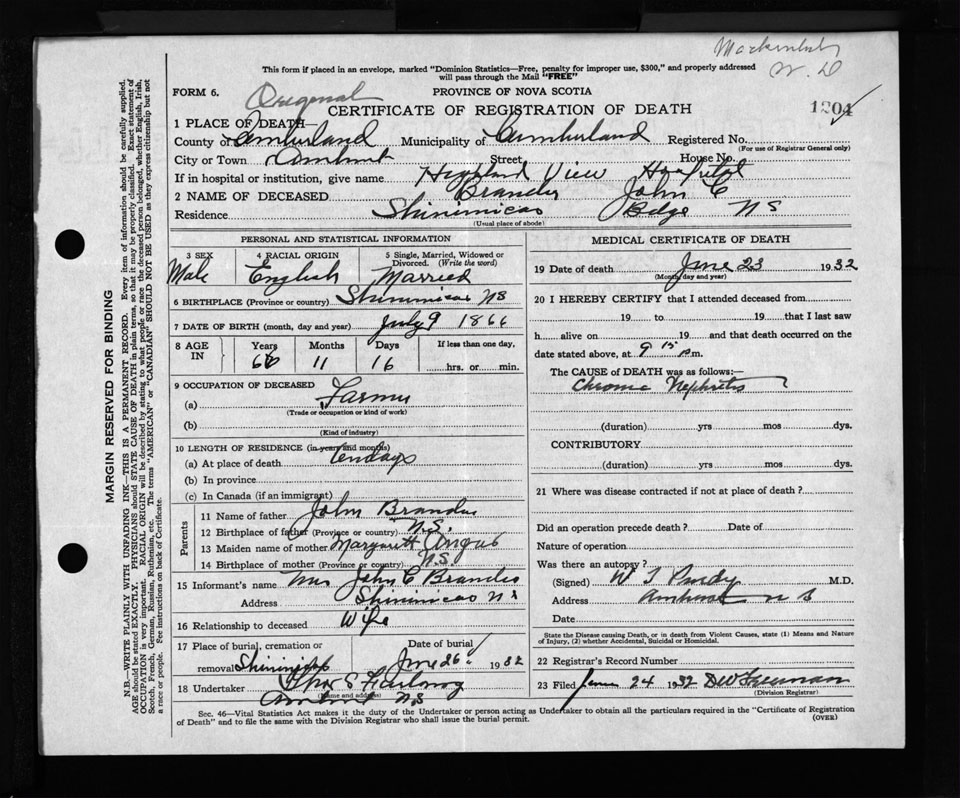 This form if placed in an envelope, marked "Dominion Statistics—Free, penalty for improper use, $300," and properly addressed
will pass through the Mail "FREE"
FORM 6. Original PROVINCE OF NOVA SCOTIA
CERTIFICATE OF REGISTRATION OF DEATH 1204
1 PLACE OF DEATH—
County of Cumberland Municipality of Cumberland Registered No.
(For use of Registrar General only)
City or Town Amherst Street House No.
If in hospital or institution, give name Highland View Hospital
2 NAME OF DECEASED John C
Residence Shinimicas Bdge NS
(Usual place of abode)
PERSONAL AND STATISTICAL INFORMATION
3 SEX 4 RACIAL ORIGIN 5 Single, Married, Widowed or Divorced. (Write the word)
Male English Married
6 BIRTHPLACE (Province or country) Shinimicas NS
7 DATE OF BIRTH (month, day and year) July 9 1866
8 AGE IN Years Months Days If less than one day,
11 16 hrs. or min.
9 OCCUPATION OF DECEASED
(a) Farmer
(Trade or occupation or kind of work)
(b)
(Kind of industry)
10 LENGTH OF RESIDENCE (in years and months)
(a) At place of death ten days
(b) In province
(c) In Canada (if an immigrant)
Parents
11 Name of father John
12 Birthplace of father (Province or country) N.S.
13 Maiden name of mother Margaret Angus
14 Birthplace of mother (Province or country) N.S.
15 Informant's name Mrs John C
Address Shinimicas NS
16 Relationship to deceased Wife
17 Place of burial, cremation or removal Shinimicas Date of burial June 26 1932
18 Undertaker
(Name and address)
Amherst NS
MEDICAL CERTIFICATE OF DEATH
19 Date of death June 23 1932
(Month, day and year)
20 I HEREBY CERTIFY that I attended deceased from
19 to 19 that I last saw
h alive on 19 and that death occurred on the
date stated above, at 9 15 p m.
The CAUSE of DEATH was as follows:—
Chronic Nephritis
(duration) yrs mos dys.
CONTRIBUTORY
(duration) yrs mos dys.
21 Where was disease contracted if not at place of death?
Did an operation precede death? Date of
Nature of operation
Was there an autopsy?
(Signed) W T Purdy M.D.
Address Amherst N S
Date
State the Disease causing Death, or in death from Violent Causes, state (1) Means and Nature
of Injury, (2) whether Accidental, Suicidal or Homicidal.
22 Registrar's Record Number
23 Filed June 24 1932 Freeman
(Division Registrar)
Sec. 46—Vital Statistics Act makes it the duty of the Undertaker or person acting as Undertaker to obtain all the particulars required in the "Certificate of Registration
of Death" and to file the same with the Division Registrar who shall issue the burial permit.
(OVER)
MARGIN RESERVED FOR BINDING
N.B.—WRITE PLAINLY WITH UNFADING INK—THIS IS A PERMANENT RECORD. Every item of information should be carefully supplied.
AGE should be stated EXACTLY. PHYSICIANS should STATE CAUSE OF DEATH in plain terms, so that it may be properly classified. Exact statement of
OCCUPATION is very important. RACIAL ORIGIN will be described by stating to what people or race the deceased person belonged, whether English, Irish,
Scotch, French, German, Russian, Ruthenian, etc. The terms "AMERICAN" or "CANADIAN" SHOULD NOT BE USED as they express citizenship but not
a race or people. See instructions on back of Certificate.